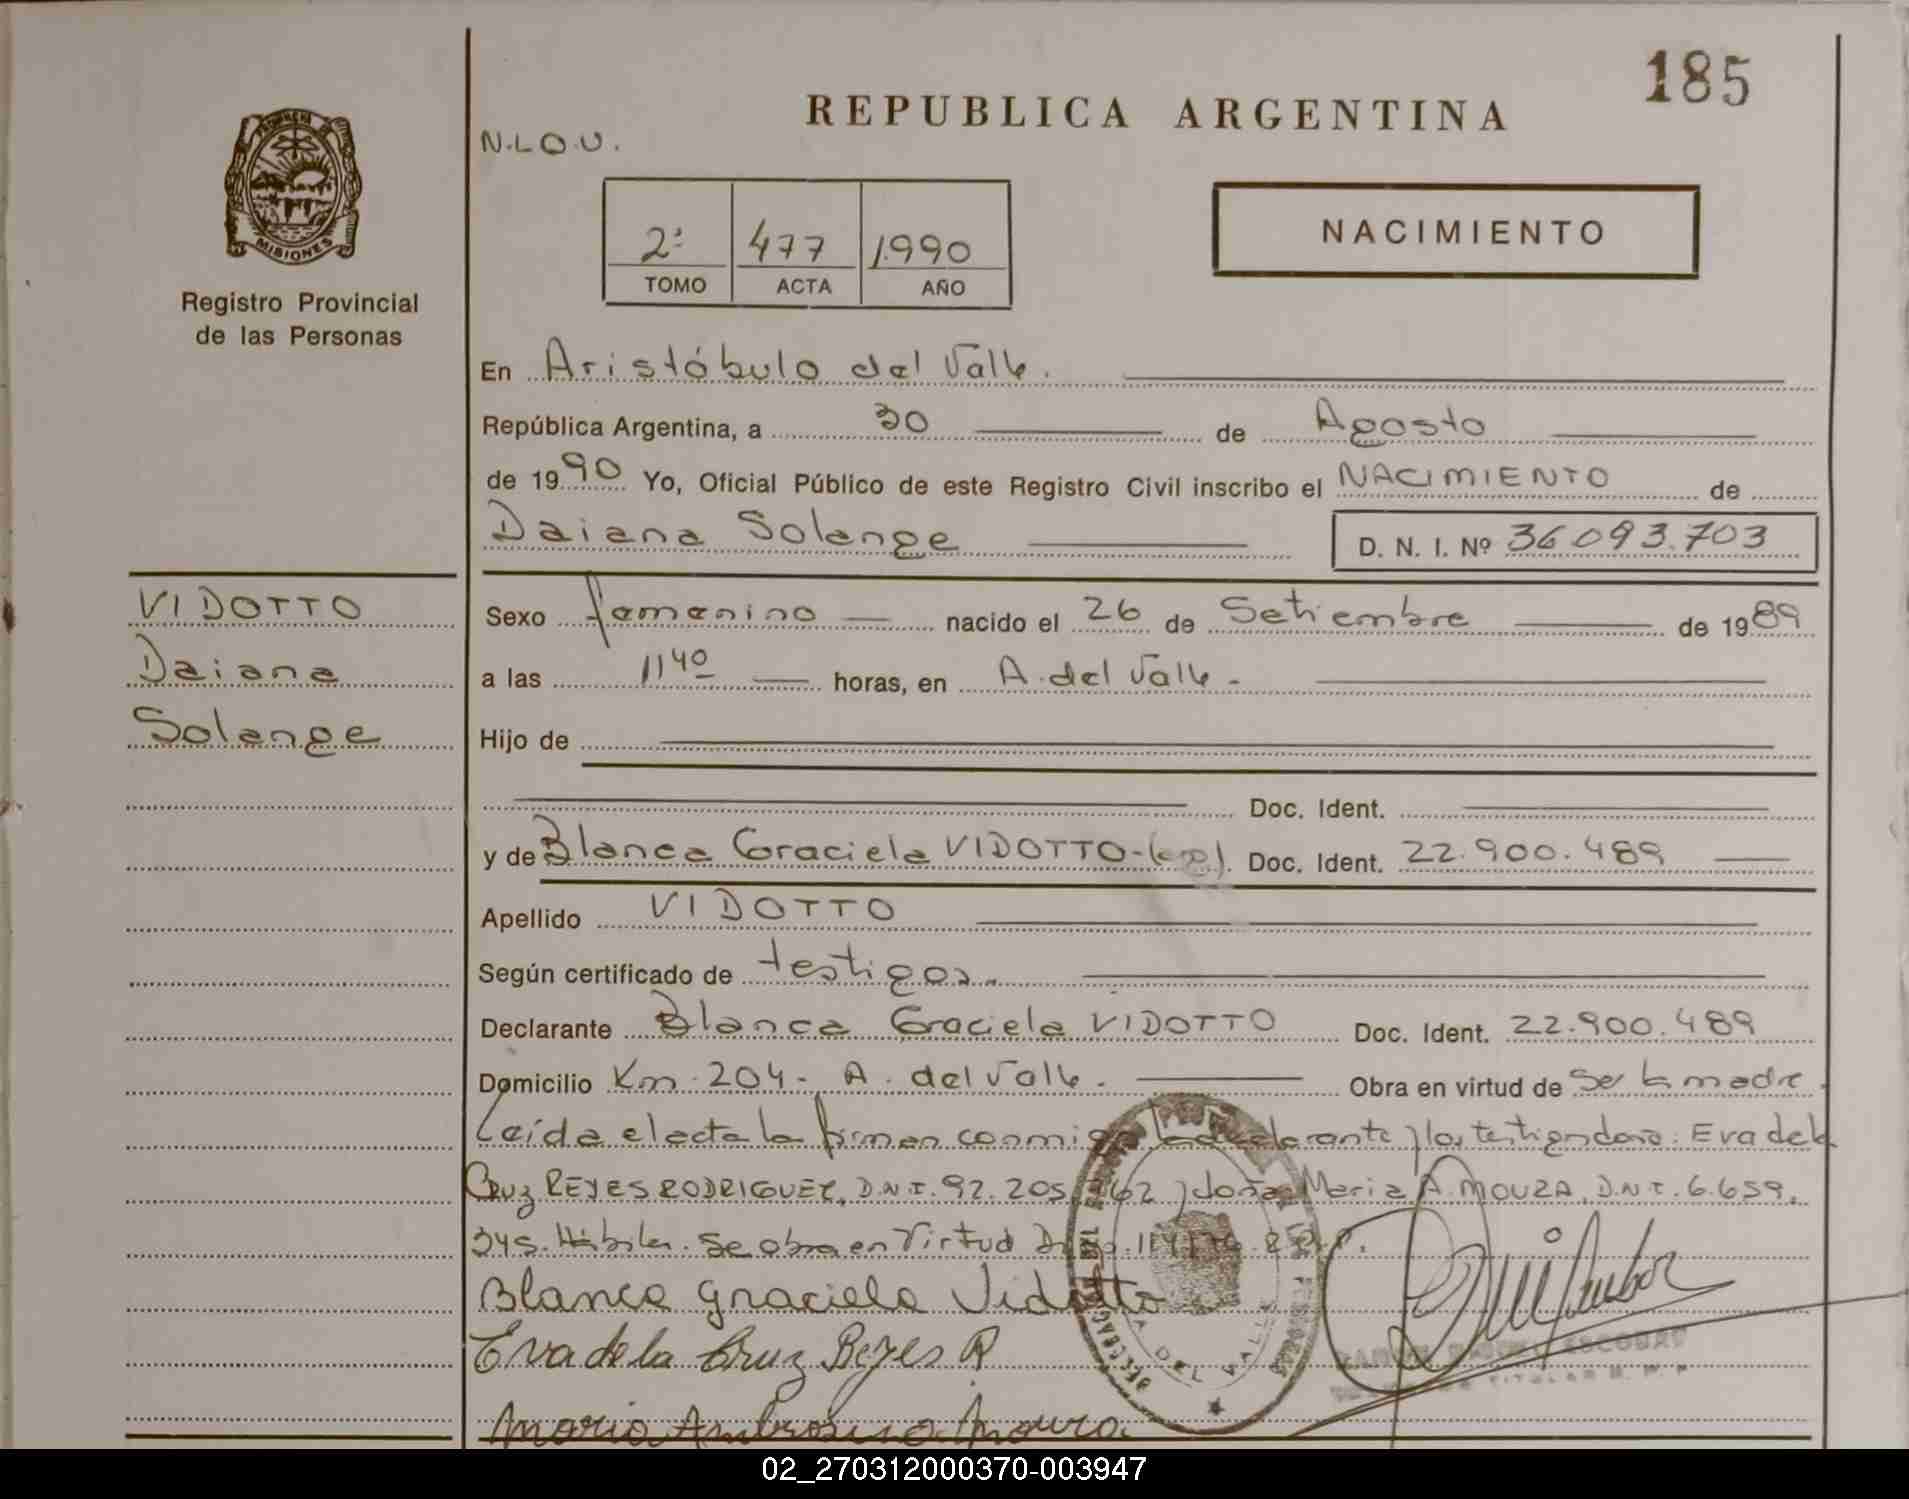 185
REPUBLICA ARGENTINA
N.L.O.U.
PROVINCIA DE
MISIONES
Registro Provincial
de las Personas
NACIMIENTO
2º 477 1.990
TOMO ACTA AÑO
En Aristóbulo del Valle.
República Argentina, a 30 de Agosto
de 1990 Yo, Oficial Público de este Registro Civil inscribo el NACIMIENTO de
Daiana Solange D. N. I. Nº 36093.703
VIDOTTO
Daiana
Solange
Sexo femenino nacido el 26 de Setiembre de 1989
a las 11 40 horas, en A. del Valle -
Hijo de
Doc. Ident.
y de Blanca Graciela VIDOTTO Doc. Ident. 22.900.489
Apellido VIDOTTO
Según certificado de testigos.
Declarante Blanca Graciela VIDOTTO Doc. Ident. 22.900.489
Domicilio Km. 204 - A. del Valle. Obra en virtud de Ser la madre.
Leída el acta la firman conmigo la declarante y los testigos Eva de la
Cruz REYES RODRIGUEZ, D.N.I. 92.205. 62 y doña Maria A. MOURA, D.N.I. 6.659.
345. Hábiles. Se obra en Virtud
Blanca Graciela Vidotto
Eva de la Cruz Reyes R
Maria Ambrosina Moura
DEL VALLE
ESCOBAR
TITULAR R. P. P
02_270312000370-003947